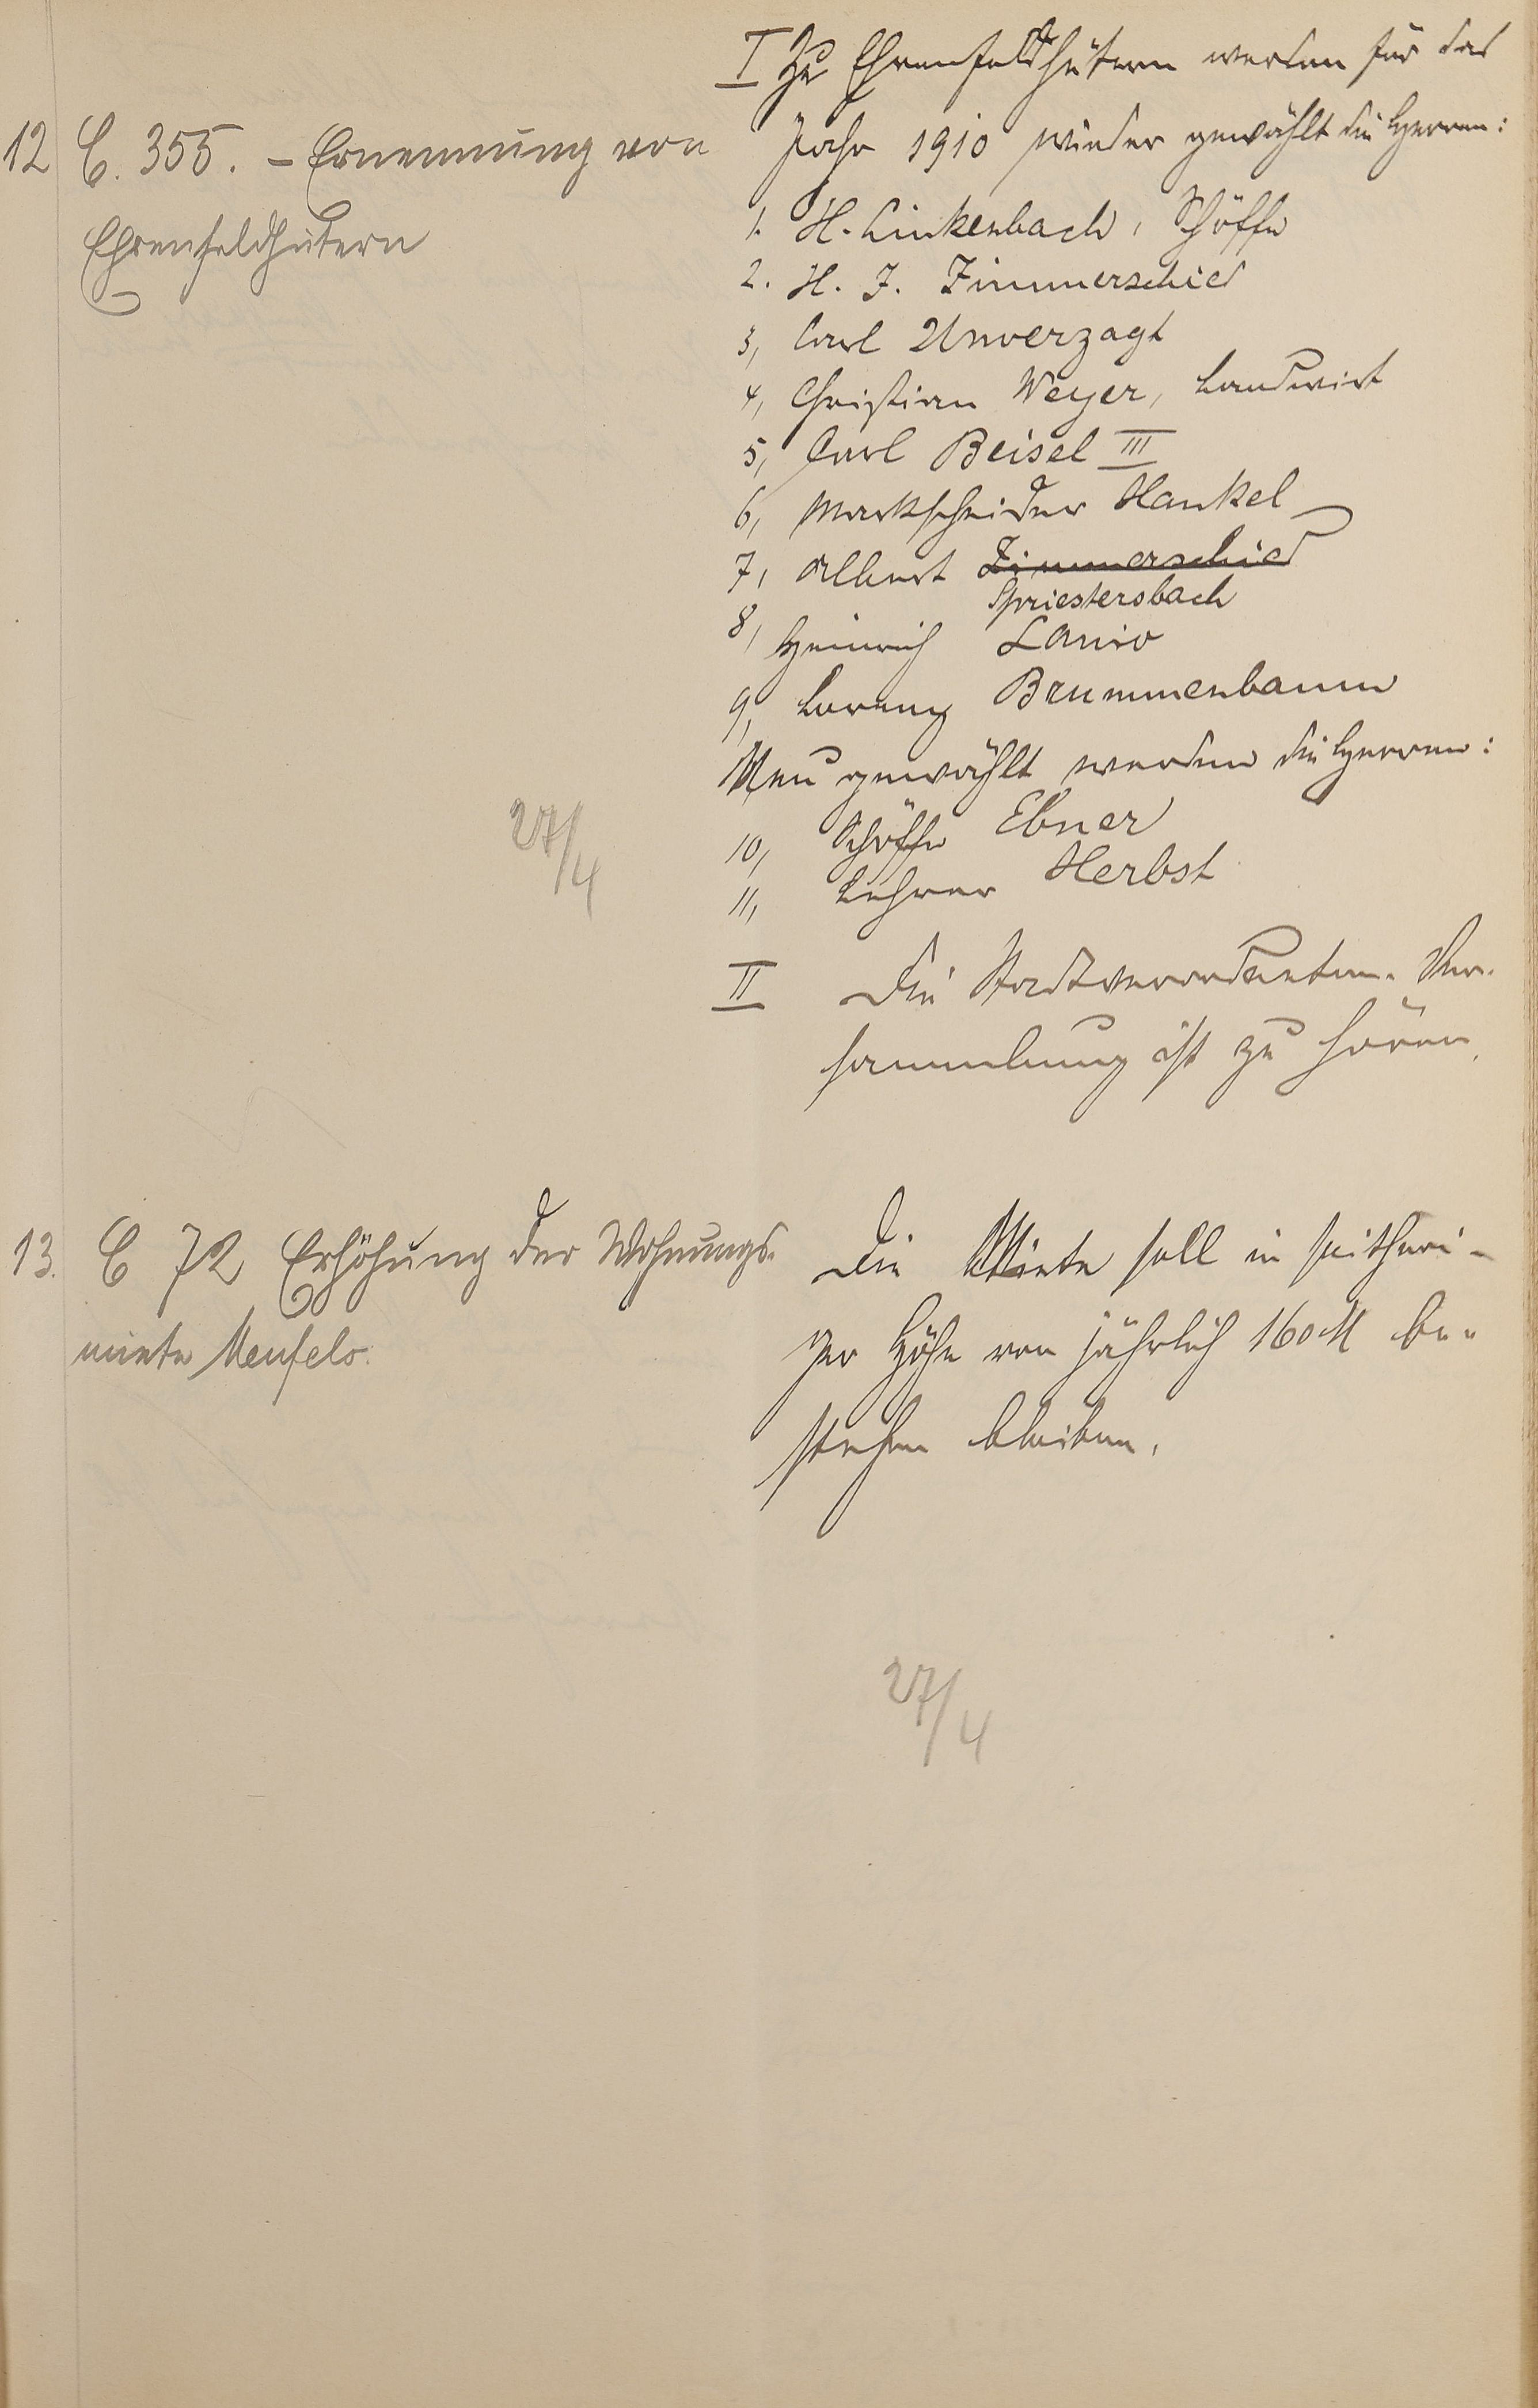 12 C. 355. – Ernennung von
Ehrenfeldhütern
27/4
I Zu Ehrenfeldhütern werden für das
Jahr 1910 wieder gewählt die Herren:
1. H. Linkenbach, Schöffe
2. H. J. Zimmerschied
3, Carl Unverzagt
4, Christian Weyer, Landwirt
5, Carl Beisel III
6, Markscheider Hankel
7, Albert Zimmerschied
Spriestersbach
8, Heinrich Lanio
9, Lorenz Brummenbaum
Neu gewählt werden die Herren:
10, Schöffe Ebner
11, Lehrer Herbst
II Die Stadtverordneten-Ver-
sammlung ist zu hören.
13. C 72 Erhöhung der Wohnungs-
miete
Die Miete soll in seitheri-
ger Höhe von jährlich 160 M be-
stehen bleiben.
27/4